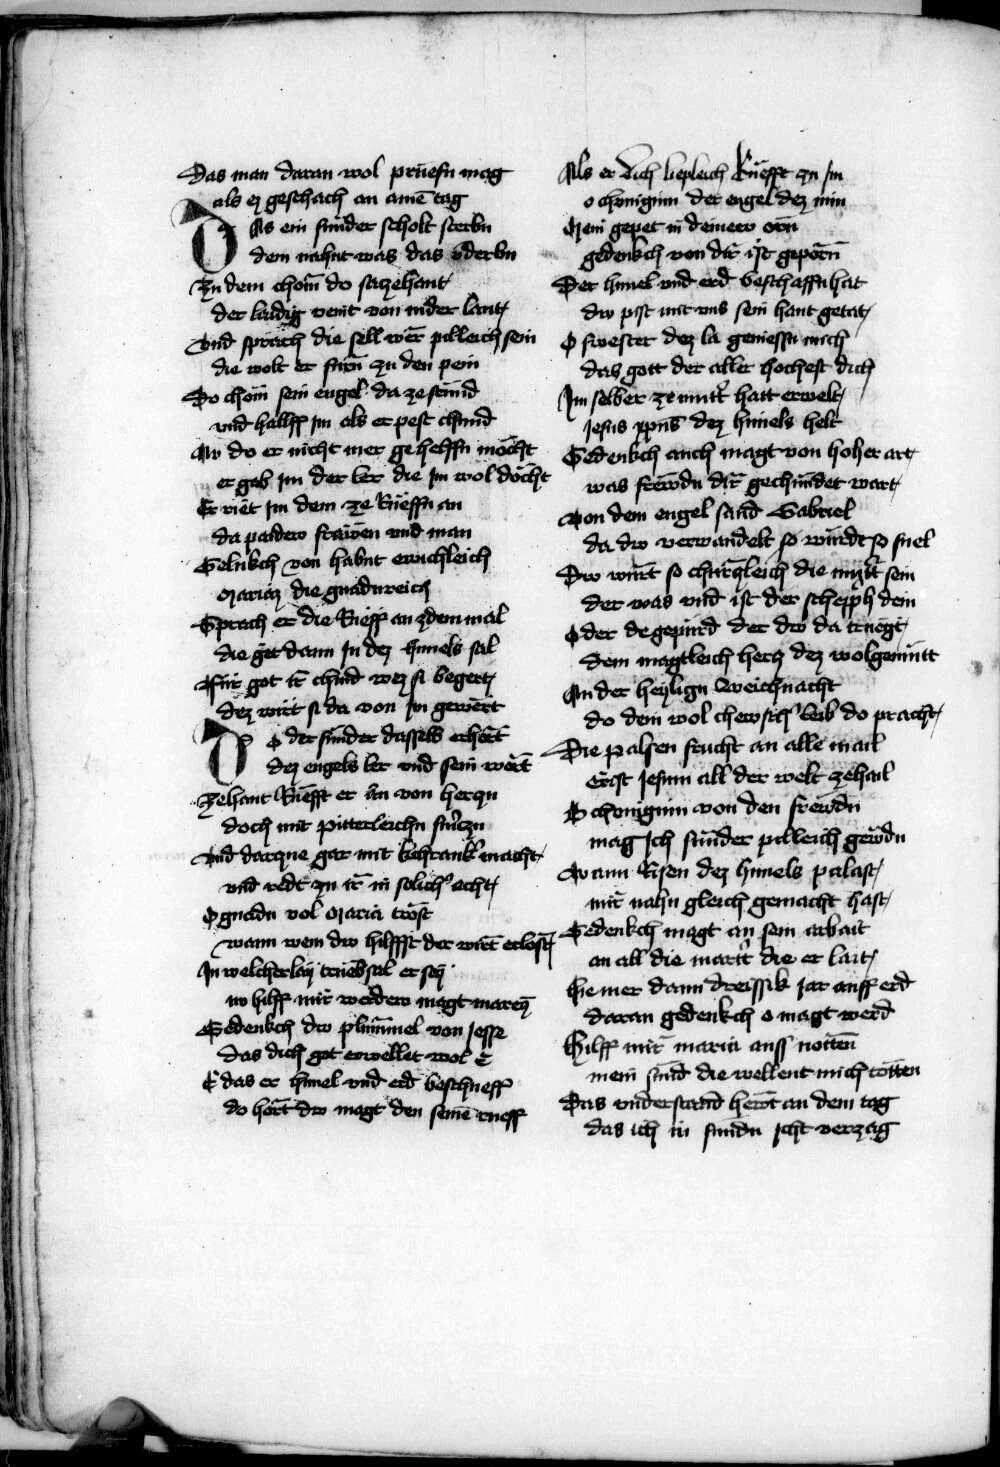 Das man daran wol prüefn mag
als eʒ geschach an ainē tag
Das ein sünder scholt sterbn
dem nahnt was das vderbn
Zu dem chom̄ do saczehant
der laidig veint von nider lant
Vnd sprach die sell wēr pilleich sein
die wolt er fürn̄ zu den pein
Do chom̄ sein engel da ze stund
vnd hallff jm als er pest chund
Nw do er nicht mer gehelffn möcht
er gab jm der ler die jm wol döcht
Er riet jm dem ze Rüeffn an
da paidew frawen vnd man
Gelukch von habnt ewichleich
Mariaʒ die gnadnreich
Sprach er die Rieff an zdem mal
die get dann jn deʒ himels sal
Für got ir chind weʒ si begert
deʒ wirt si da von jm gewert
Do der sünder dasselb erhört
deʒ engels ler vnd sein wort
Zehant Rüefft er an von herczn
doch mit pitterleichn smerczn
Vnd darczue gar mit kchrankʼ macht
vnd redt zu ir in solichʼ echt
O gnadn vol Maria tröst
wann wem dw hilffst der wirt erlöst
In welcherlay trüebsal er sey
nw hilff mir werdew magt marey
Gedenkch dw plüemel von jesse
das dich got erwellet wol e
E das er himel vnd erd beschueff
do hört dw magt den seinē rueff
Als er dich liepleich Rüefft zu jm
o choniginn der engel deʒ nim
Mein gepet in deinew orn
gedenkch von dir ist geporn
Der himel vnd erd beschaffn hat
dw pist mit vns sein hant getat
O swester deʒ la geniessn mich
das gott der aller hochest dich
Im selber ze mutʼ hatt erwelt
Jesus xp̄us deʒ himels helt
Gedenkch auch magt von hoher art
was frewdn dir gechündet wart
Von dem engel sand Gabriel
da dw verwandelt so würdt so snel
Dw wurt so churczleich die mutʼ sein
der was vnd ist der scheppfʼ dein
O der de gepürd der dw da truegt
dem magtleich hercz deʒ wolgenüett
An der heylign weichnacht
do dein wol chewschʼ leib do pracht
Die palsen frucht an alle mail
Crist Jesum all der welt ze hail
O choniginn von den frewdn
mag jch sünder pilleich gewdn
Wann Risen deʒ himels palast
mir nahn gleich gemacht hast
Gedenkch magt an sein arbait
an all die martʼ die er lait
Hie mer dann dreissik jar auff erd
daran gedenkch o magt werd
Hilff mir maria auss nötten
mein sünd die wellent mich tötten
Das vnderstand hewt an dem tag
das ich in sundn jcht verzag